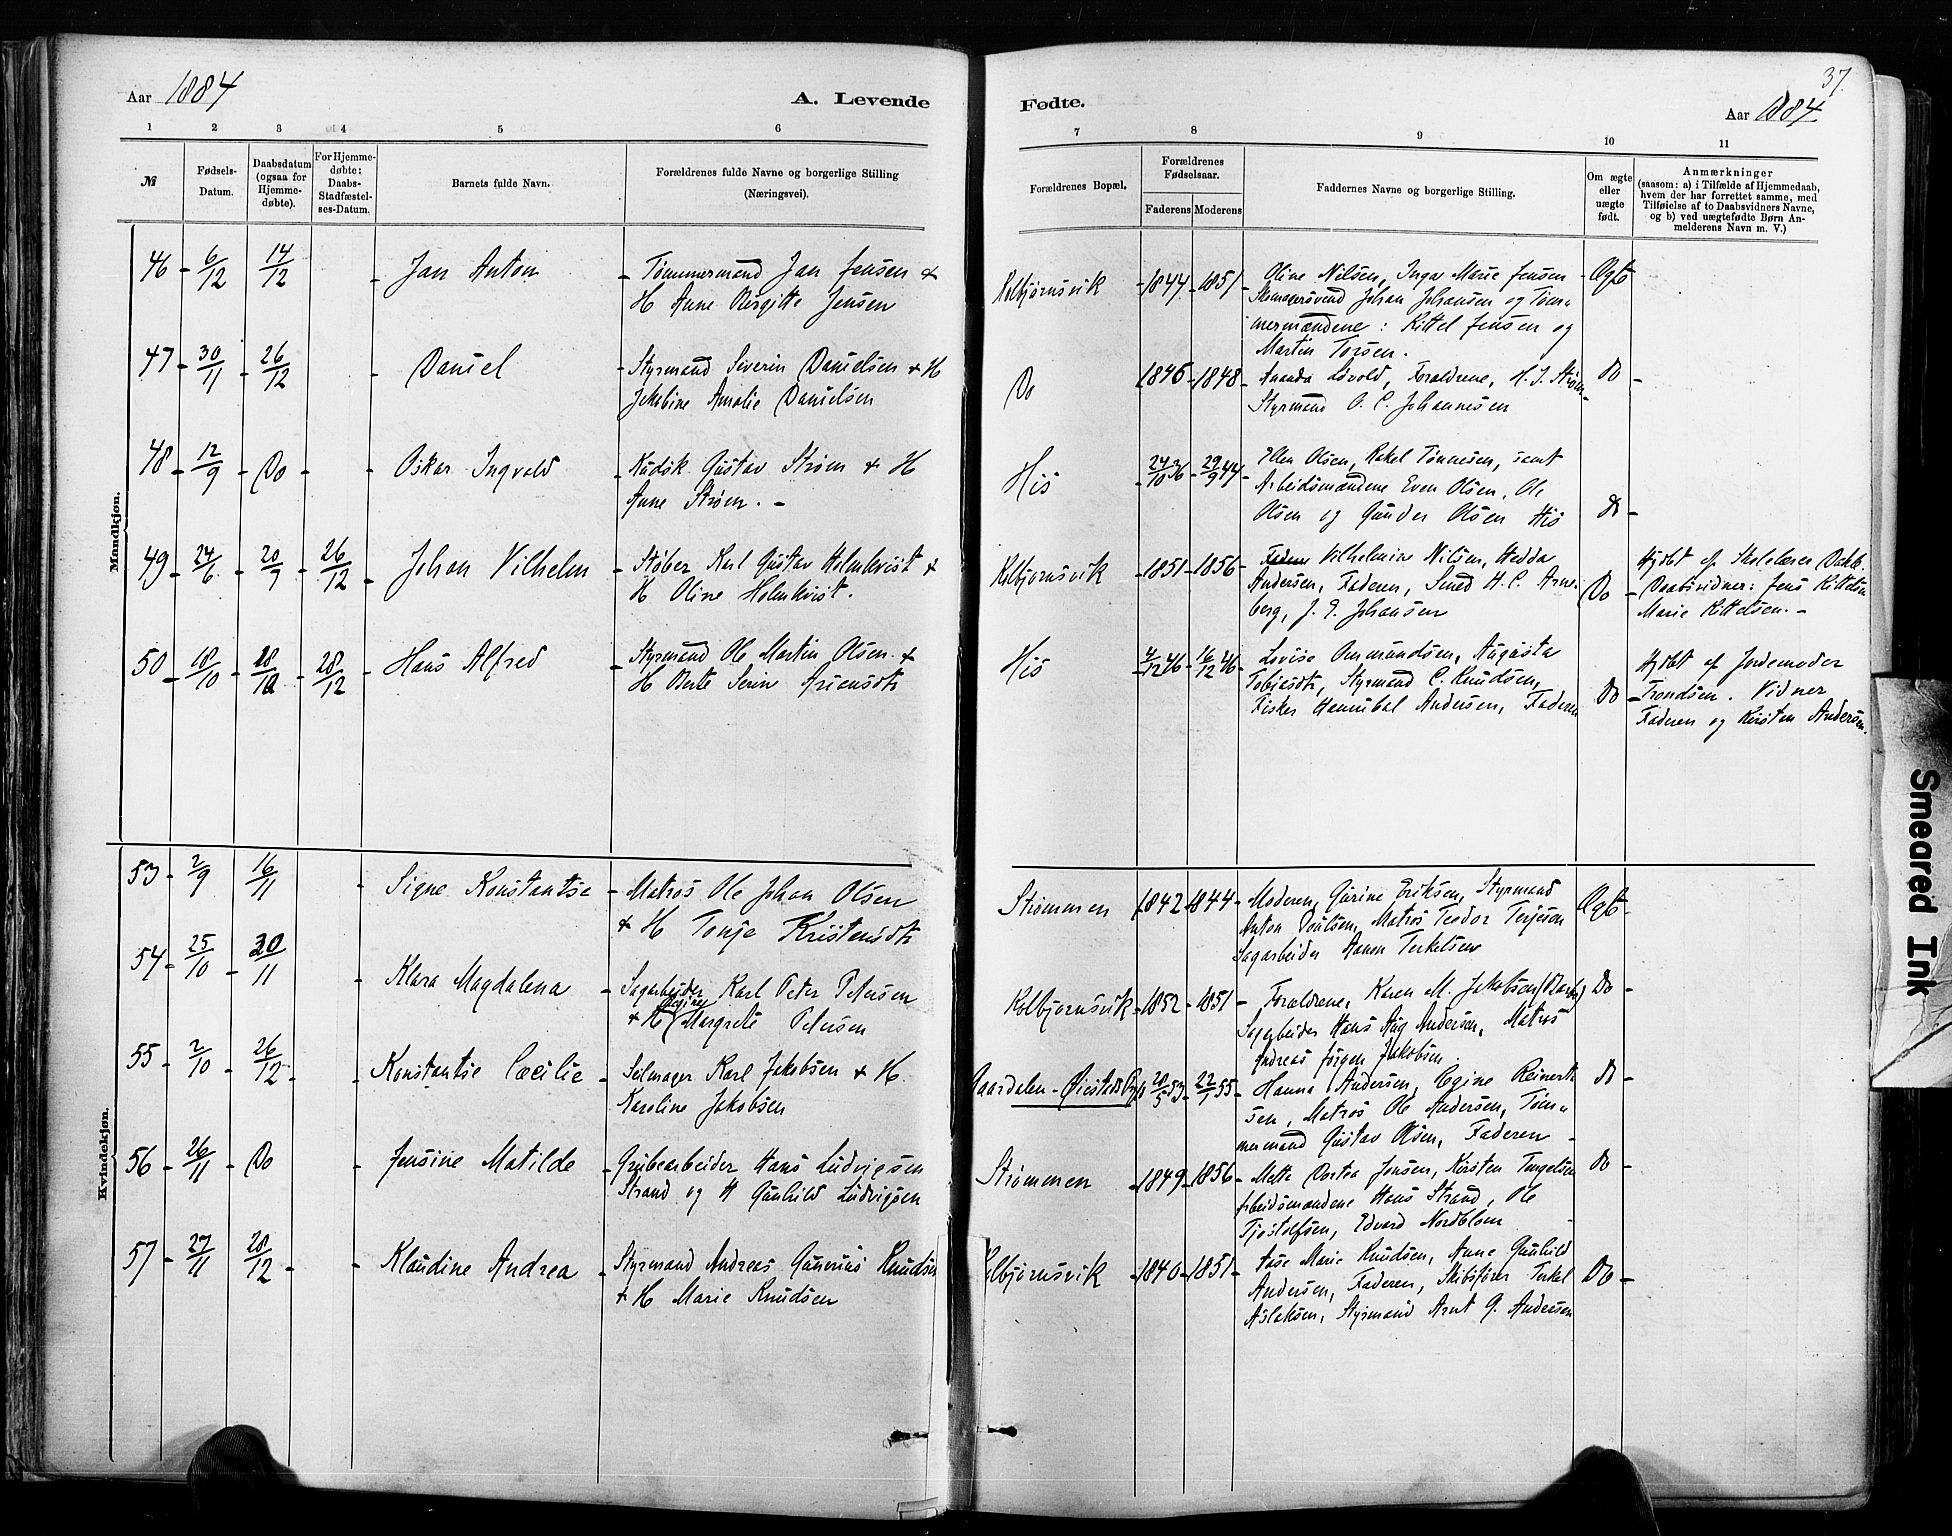 Aar 1884
A. Levende
Fødte.
37.
Aar 1884
1 2 3 4 5 6 7 8 9 10 11
№
Fødsels-
Datum.
Daabsdatum
(ogsaa for
Hjemme-
døbte).
For Hjemme-
døbte:
Daabs-
Stadfæstel-
ses-Datum.
Barnets fulde Navn.
Forældrenes fulde Navne og borgerlige Stilling
(Næringsvei).
Forældrenes Bopæl.
Forældrenes
Fødselsaar.
Faderens Moderens
Faddernes Navne og borgerlige Stilling.
Om ægte
eller
uægte
født.
Anmærkninger
(saasom: a) i Tilfælde af Hjemmedaab,
hvem der har forrettet samme, med
Tilføielse af to Daabsvidners Navne,
og b) ved uægtefødte Børn An-
melderens Navn m. V.)
Mandkjøn.
46 - 6/12 14/12 - Jan Anton - Tømmermand Jan Jensen &
H Anne Birgitte Jensen
Kolbjørnsvik - 1844 - 1851 - Oline Nilsen, Inga Marie Jensen - Ægte
Skomagersvend Johan Johansen og Tøm-
mermændene: Kittel Jensen og
Martin Torsen.
47 - 30/11 - 26/12 - Daniel - Styrmand Severin Danielsen & H
Jakobine Amalie Danielsen
Do 1846 - 1848 - Ananda, Forældrene, H. J. Strøm Do -
Styrmand O. C. Johannesen
48 - 12/9 - Do - - Oskar Ingvald - Kudsk Gustav Strøm & H
Anne Strøm. -
His - 24/10 36 - 29/9 44 - Ellen Olsen, Rakel Tønnesen, samt
Arbeidsmændene Even Olsen, Ole
Olsen og Gunder Olsen His Do -
49 - 24/6 - 20/9 - 26/12 - Johan Vilhelm - Støber Karl Gustav Holmkvist &
H Oline Holmkvist.
Kolbjørnsvik - 1851 - 1856 - Vilhelmine Nilsen, Hedda
Andersen, Faderen, Smed H. C. Arne-
berg, J. E. Johansen Do -
Hjdbt af Skolelærer Dahl.
Daabsvidner: Jens Kittelsen
Marie Kittelsen. -
50 - 18/10 - 28/10 - 28/12 - Hans Alfred - Styrmand Ole Martin Olsen &
H Berte Serine
His 4/12 46 - 16/12 46 - Lovise Ommundsen, Augusta
Tobiasdtr, Styrmand C. Knudsen,
Fisker Hannibal Andersen, Faderen Do -
Hjdbt af Jordemoder
Trondsen. Vidner
Faderen og Kirsten Andersen.
Kvindekjøn.
53 - 2/9 16/11 - Signe Konstantse - Matros Ole Johan Olsen
& H Tonje Kristensdtr
Strømmen 1842 - 1844 - Moderen, Gurine Eriksen, Styrmand Ægte
Anton Poulsen, Matros Teodor Terjesen
Sagarbeider Aanon Terkelsen
54 - 25/10 - 30/11 - Klara Magdalena - Sagarbeider Karl Peter Petersen
& H Margrete Petersen
Kolbjørnsvik - 1852 - 1851 - Forældrene, Karen M. Jakobsen Do -
Sagarbeider Hans Aug Andersen, Matros
Andreas Jørgen Jakobsen
55 - 2/10 - 26/12 - - Konstantse Cæcilie - Seilmager Karl Jakobsen & H.
Karoline Jakobsen
20/5 53 - 22/1 55 - Hanna Andersen, Regine Reinert- Do -
sen, Matros Ole Andersen, Tøm-
mermand Gustav Olsen, Faderen -
56 - 26/11 - Do - Jensine Matilde - Grubearbeider Hans Ludvigsen
Strand og H Gunhild Ludvigsen
Strømmen - 1849 - 1856 - Mette Dortea Jensen, Kirsten Tengelsen Do -
Arbeidsmændene Hans Strand, Ole
Tjostolfsen, Edvard Nordblom -
57 - 27/11 28/12 - - Klaudine Andrea - Styrmand Andreas Gunerius Knudsen
& H Marie Knudsen
Kolbjørnsvik - 1840 - 1851 - Aase Marie Knudsen, Anne Gunhild
Andersen, Faderen, Skibsfører Terkel Do -
Aslaksen, Styrmand Arnt G. Andersen
Smeared Ink